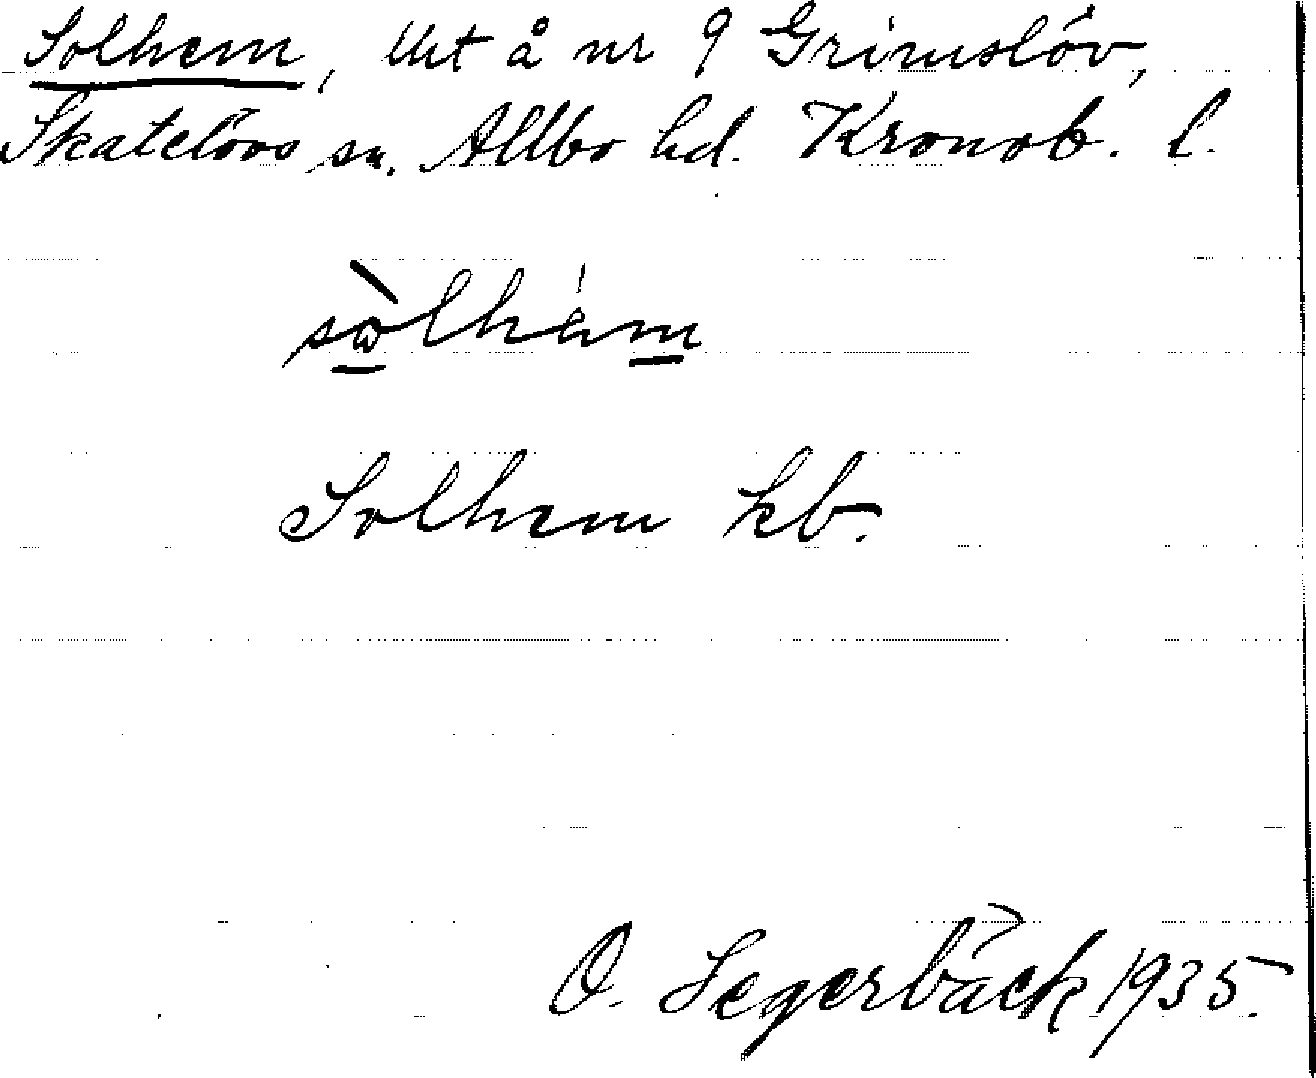 Solhem, Utt å nr 9 Grimslöv,
Skatelövs sn. Allbo hd. Kronob. l.
sòlhèm
Solhem kb.
O. Segerbäck 1935.